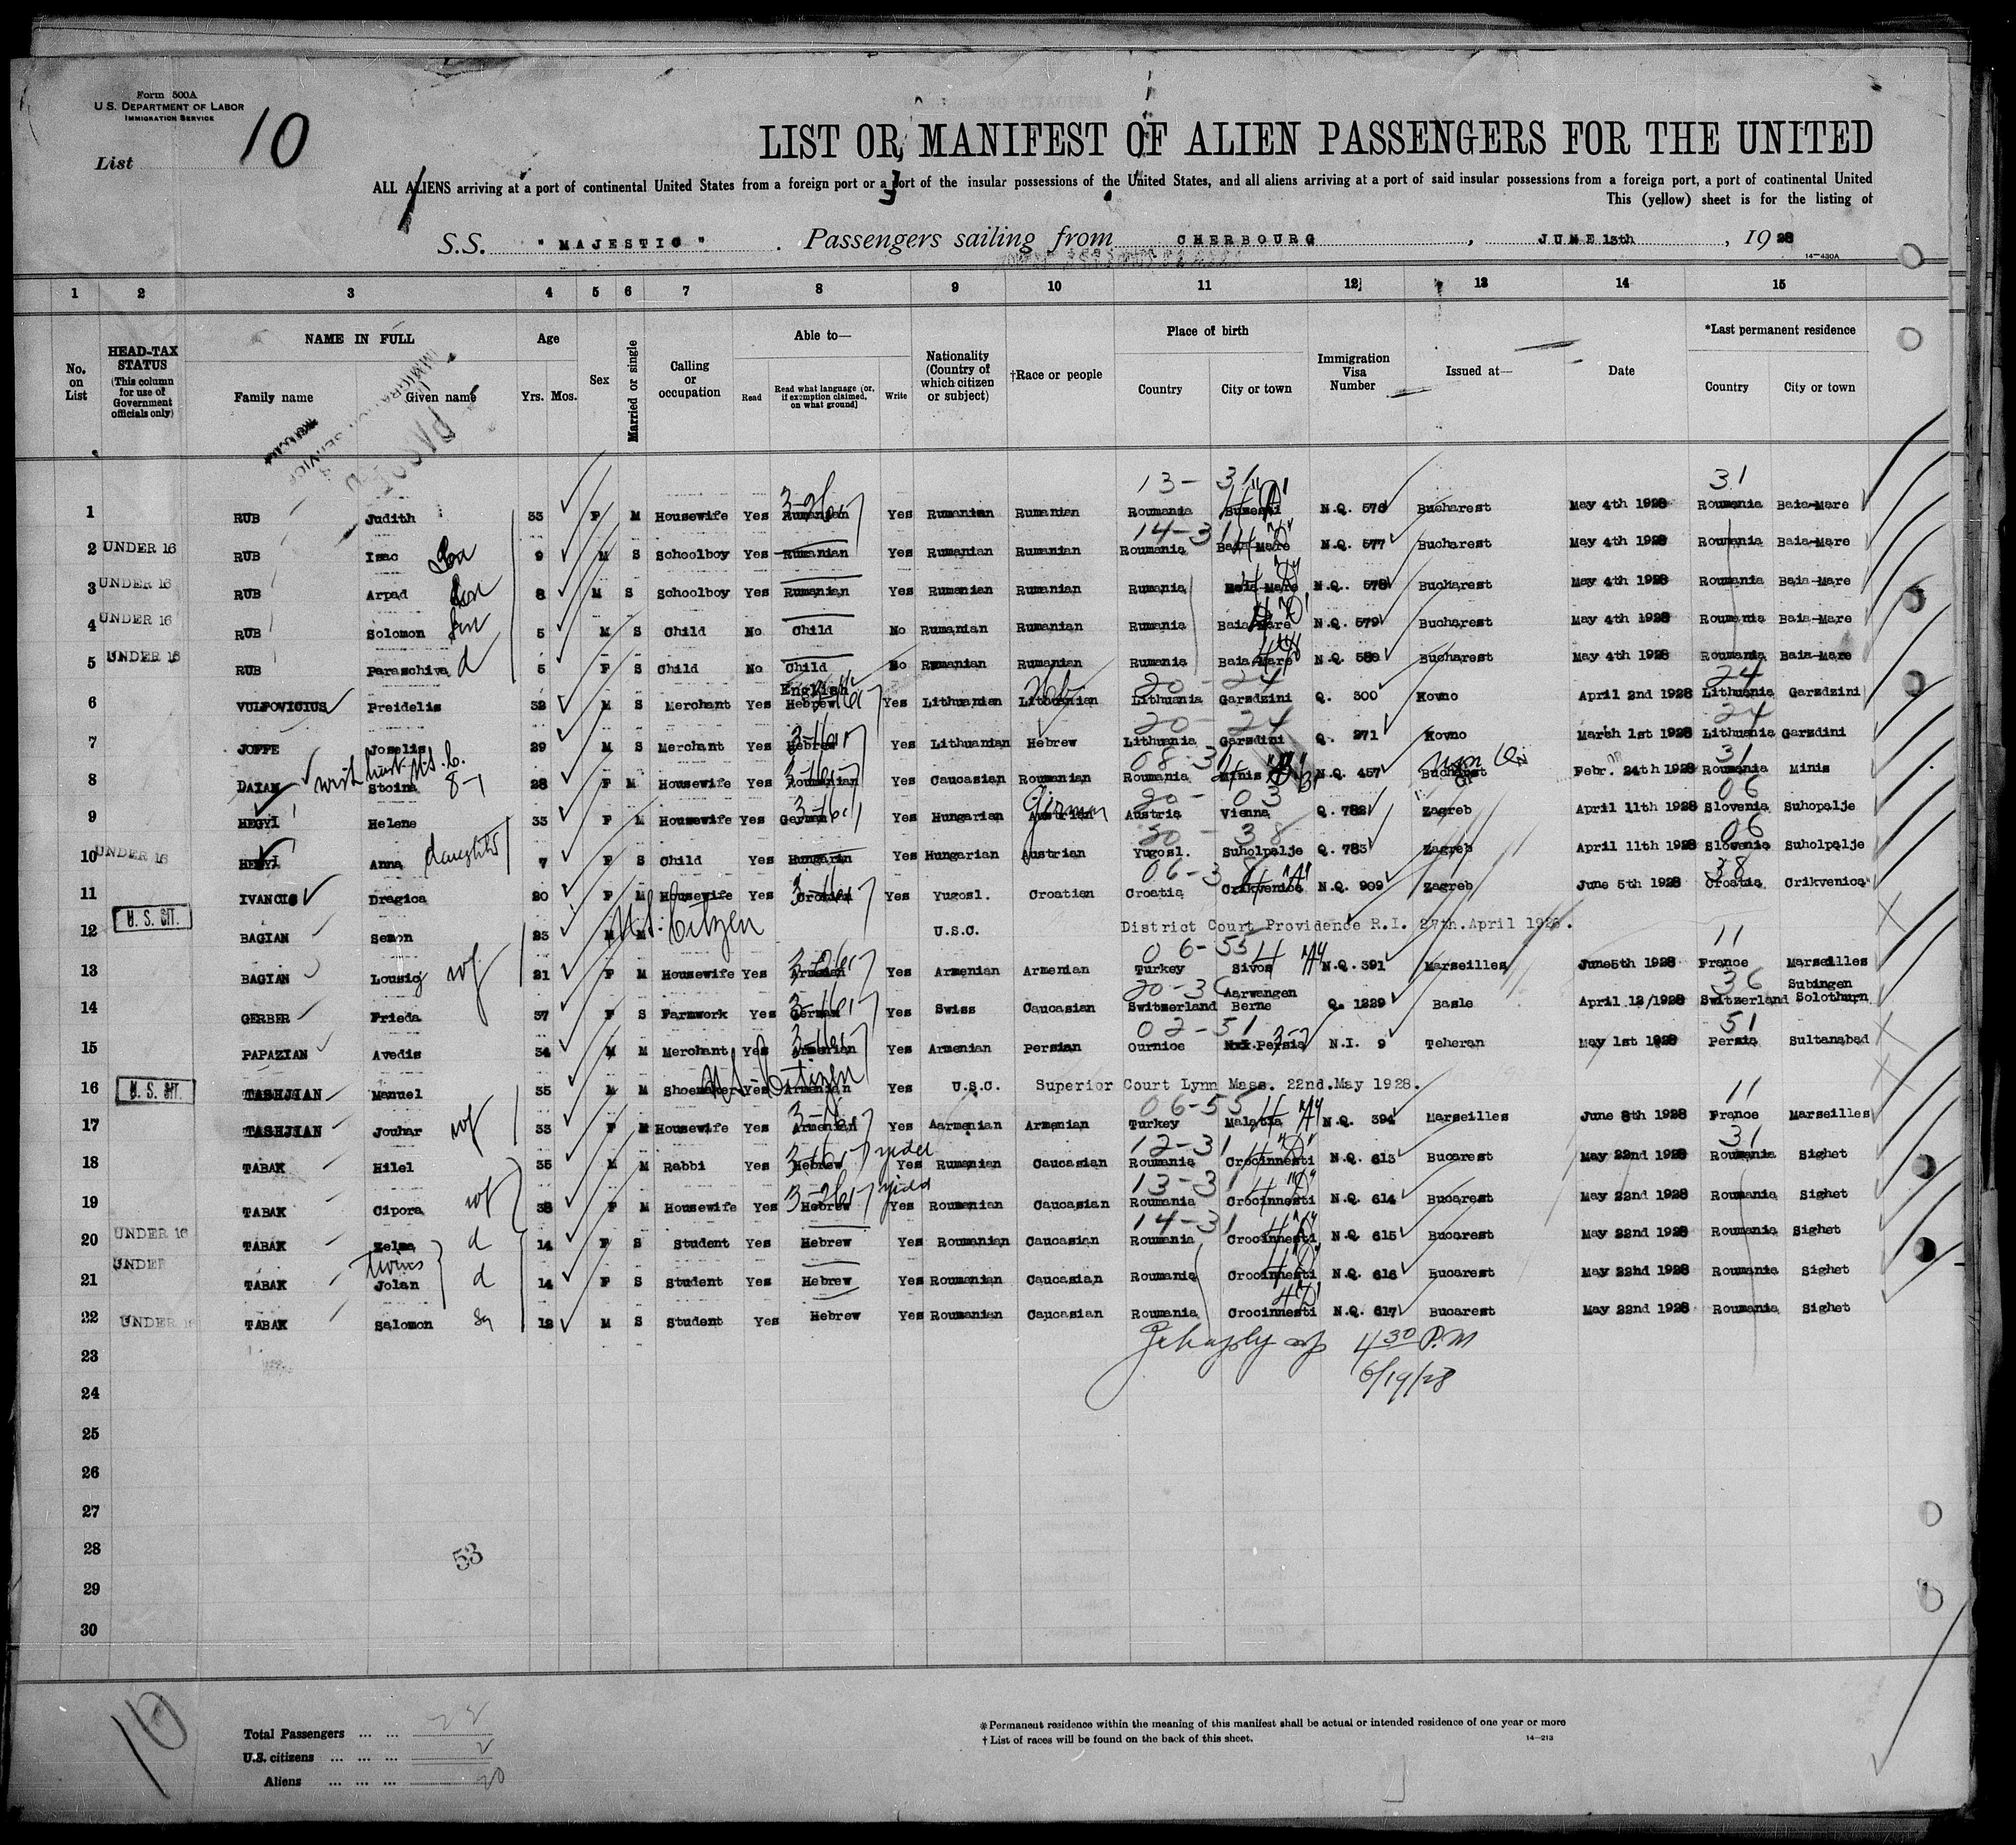 Form 500A
U.S. DEPARTMENT OF LABOR
IMMIGRATION SERVICE
List 10
LIST OR MANIFEST OF ALIEN PASSENGERS FOR THE UNITED
ALL ALIENS arriving at a port of continental United States from a foreign port or a port of the insular possessions of the United States, and all aliens arriving at a port of said insular possessions from a foreign port, a port of continental United
This (yellow) sheet is for the listing of
S.S. " MAJESTIC " . Passengers sailing from CHERBOURG , JUNE 13th , 19 28
14—430A
1 2 3 4 5 6 7 8 9 10 11 12 13 14 15
No. on List
HEAD-TAX STATUS (This column for use of Government officials only)
NAME IN FULL
Family name Given name
Age
Yrs. Mos.
Sex
Married or single
Calling or occupation
Able to—
Read Read what language (or, if exemption claimed, on what ground) Write
Nationality (Country of which citizen or subject)
†Race or people
Place of birth
Country City or town
Immigration Visa Number
Issued at—
Date
*Last permanent residence
Country City or town
13-31 31
1 RUB Judith 33 F M Housewife Yes Rumanian Yes Rumanian Rumanian Roumania N.Q. 576 Bucharest May 4th 1928 Roumania Baia-Mare
14-31
2 UNDER 16 RUB Isac Son 9 M S Schoolboy Yes Rumanian Yes Rumanian Rumanian Roumania Baia Mare N.Q. 577 Bucharest May 4th 1928 Roumania Baia-Mare
3 UNDER 16 RUB Arpad Son 8 M S Schoolboy Yes Rumanian Yes Rumanian Rumanian Rumania Baia Mare N.Q. 578 Bucharest May 4th 1928 Roumania Baia-Mare
4 UNDER 16 RUB Solomon Son 5 M S Child No Child No Rumanian Rumanian Rumania Baia Mare N.Q. 579 Bucharest May 4th 1928 Roumania Baia-Mare
5 UNDER 16 RUB Paraschiva d 5 F S Child No Child No Rumanian Rumanian Rumania Baia Mare N.Q. 580 Bucharest May 4th 1928 Roumania Baia-Mare
English 20-24 24
6 VULFOVICIUS Freidelis 32 M S Merchant Yes Hebrew Yes Lithuanian Lithuanian Heb Lithuania Garzdzini Q. 300 Kovno April 2nd 1928 Lithuania Garzdzini
20-24 24
7 JOFFE Joselis 29 M S Merchant Yes Hebrew Yes Lithuanian Hebrew Lithuania Garzdini Q. 271 Kovno March 1st 1928 Lithuania Garzdini
08-31 31
8 DAIAN Stoina 28 F M Housewife Yes Roumanian Yes Caucasian Roumanian Roumania Minis N.Q. 457 Bucharest Febr. 24th 1928 Roumania Minis
20-03 06
9 HEGYI Helene 33 F M Housewife Yes German Yes Hungarian Austrian German Austria Vienna Q. 782 Zagreb April 11th 1928 Slovenia Suhopolje
20-38 06
10 UNDER 16 HEGYI Anna daughter 7 F S Child Yes Hungarin Yes Hungarian Austrian Yugosl. Suholpolje Q. 783 Zagreb April 11th 1928 Slovenia Suholpolje
06-38 38
11 IVANCIC Dragica 20 F M Housewife Yes Croatian Yes Yugosl. Croatian Croatia Crikvenica N.Q. 909 Zagreb June 5th 1928 Croatia Crikvenica
12 U. S. CIT. BAGIAN Semon 23 M M U.S. Citizen U.S.C. District Court Providence R.I. 27th.April 1928.
06-55 11
13 BAGIAN wf 21 F M Housewife Yes Armenian Yes Armenian Armenian Turkey Sivos N.Q. 391 Marseilles June5th 1928 France Marseilles
20-36 36
14 GERBER Frieda 37 F S Farmwork Yes German Yes Swiss Caucasian Switzerland Aarwangen Berne Q. 1229 Basle April 12/1928 Switzerland Subingen Solothurn
02-51 51
15 PAPAZIAN Avedis 34 M M Merchant Yes Armenian Yes Armenian Persian Ourmioe Persia N.I. 9 Teheran May 1st 1928 Persia Sultanabad
16 U. S. CIT. TASHJIAN Manuel 35 M M Shoemaker Yes Armenian U.S. Citizen Yes U.S.C. Superior Court Lynn Mass. 22nd.May 1928.
06-55 11
17 TASHJIAN Jouhar wf 33 F M Housewife Yes Armenian Yes Aarmenian Armenian Turkey Malatia N.Q. 394 Marseilles June 8th 1928 France Marseilles
12-31 31
18 TABAK Hilel 35 M M Rabbi Yes Hebrew Yes Rumanian Caucasian Roumania Crocinnesti N.Q. 613 Bucarest May 22nd 1928 Roumania Sighet
13-31
19 TABAK Cipora wf 38 F M Housewife Yes Hebrew Yes Roumenian Caucasian Roumania Crocinnesti N.Q. 614 Bucarest May 22nd 1928 Roumania Sighet
14-31
20 UNDER 16 TABAK Zelma d 14 F S Student Yes Hebrew Yes Roumanian Caucasian Roumania Crocinnesti N.Q. 615 Bucarest May 22nd 1928 Roumania Sighet
twins
21 UNDER TABAK Jolan d 14 F S Student Yes Hebrew Yes Roumanian Caucasian Roumania Crocinnesti N.Q. 616 Bucarest May 22nd 1928 Roumania Sighet
22 UNDER 16 TABAK Salomon 12 M S Student Yes Hebrew Yes Roumanian Caucasian Roumania Crocinnesti N.Q. 617 Bucarest May 22nd 1928 Roumania Sighet
23 4 30 P.M
24 6/19/28
25
26
27
28 53
29
30
10
Total Passengers ... ... 22
U.S. citizens ... ... ... 2
Aliens ... ... ... 20
*Permanent residence within the meaning of this manifest shall be actual or intended residence of one year or more
† List of races will be found on the back of this sheet.
14—213